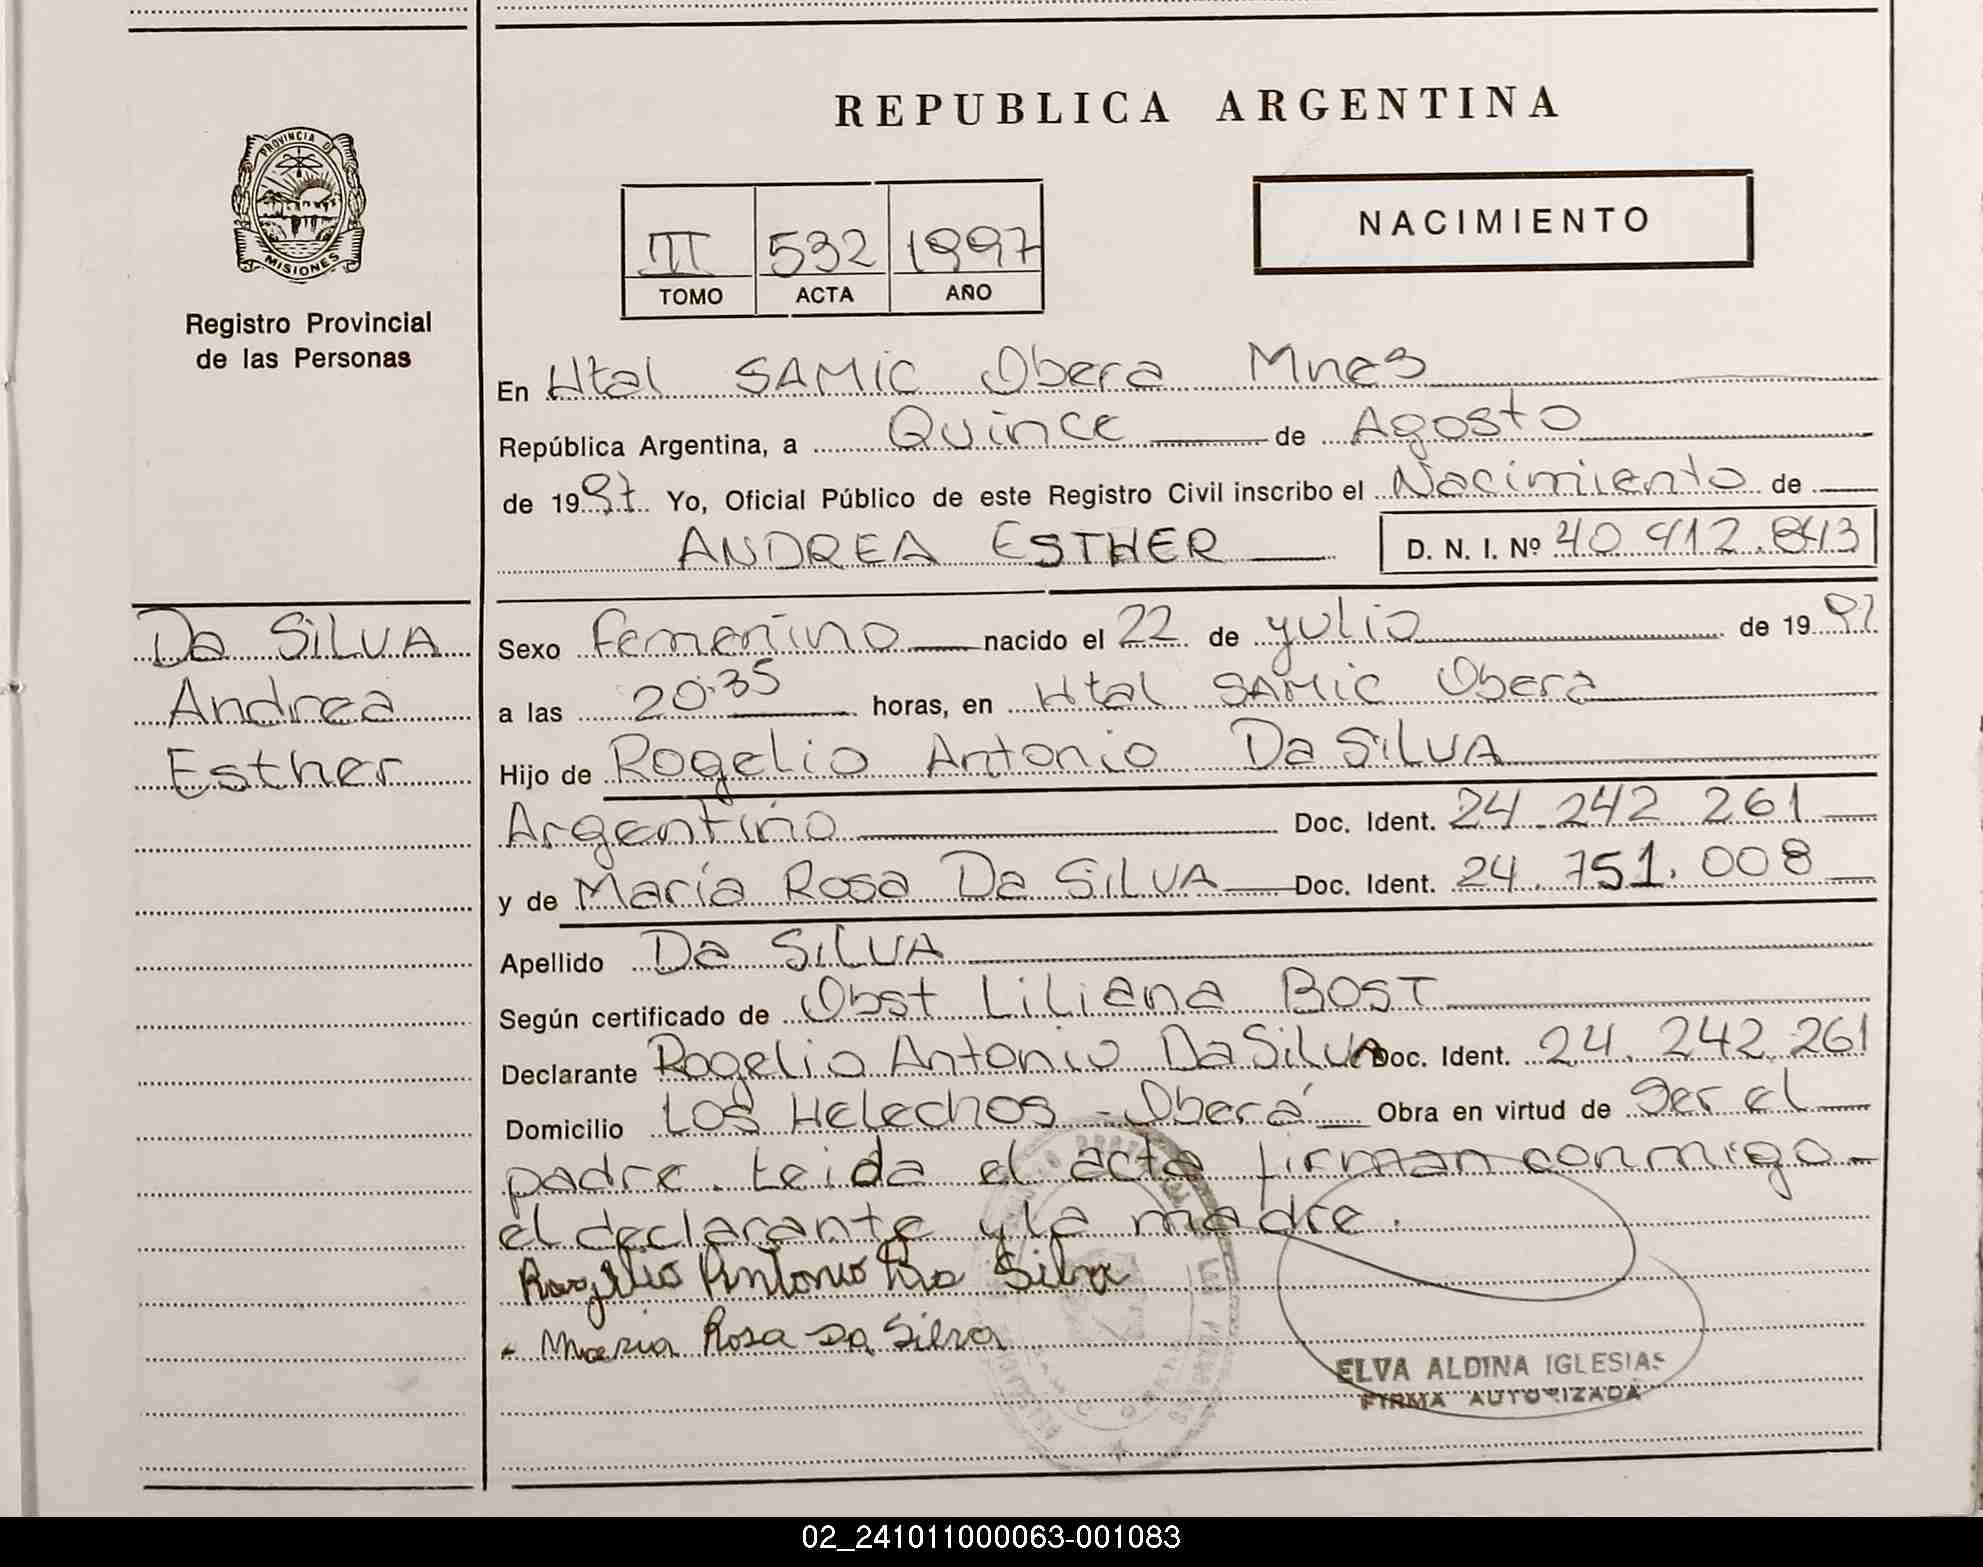 REPUBLICA ARGENTINA
PROVINCIA D
MISIONES
Registro Provincial
de las Personas
III 532 1997
TOMO ACTA AÑO
NACIMIENTO
En Htal SAMIC Obera Mnes
República Argentina, a Quince de Agosto
de 1997. Yo, Oficial Público de este Registro Civil inscribo el Nacimiento de
ANDREA ESTHER D. N. I. Nº 40 412.843
Da SILVA
Andrea
Esther
Sexo Femenino nacido el 22 de yulio de 1997
a las 20.35 horas, en Htal SAMIC Obera
Hijo de Rogelio Antonio Da SILVA
Argentino Doc. Ident. 24.242 261
y de María Rosa Da SILVA Doc. Ident. 24.751.008
Apellido Da SILVA
Según certificado de Obst Liliana BOST
Declarante Rogelio Antonio Da Silva Doc. Ident. 24.242.261
Domicilio Los Helechos - Oberá Obra en virtud de Ser el
padre. Leida el acta firman conmigo -
el declarante y la madre.
Rogelio Antonio Da Silva
- Maria Rosa Da Silva
ELVA ALDINA IGLESIAS
FIRMA AUTORIZADA
02_241011000063-001083